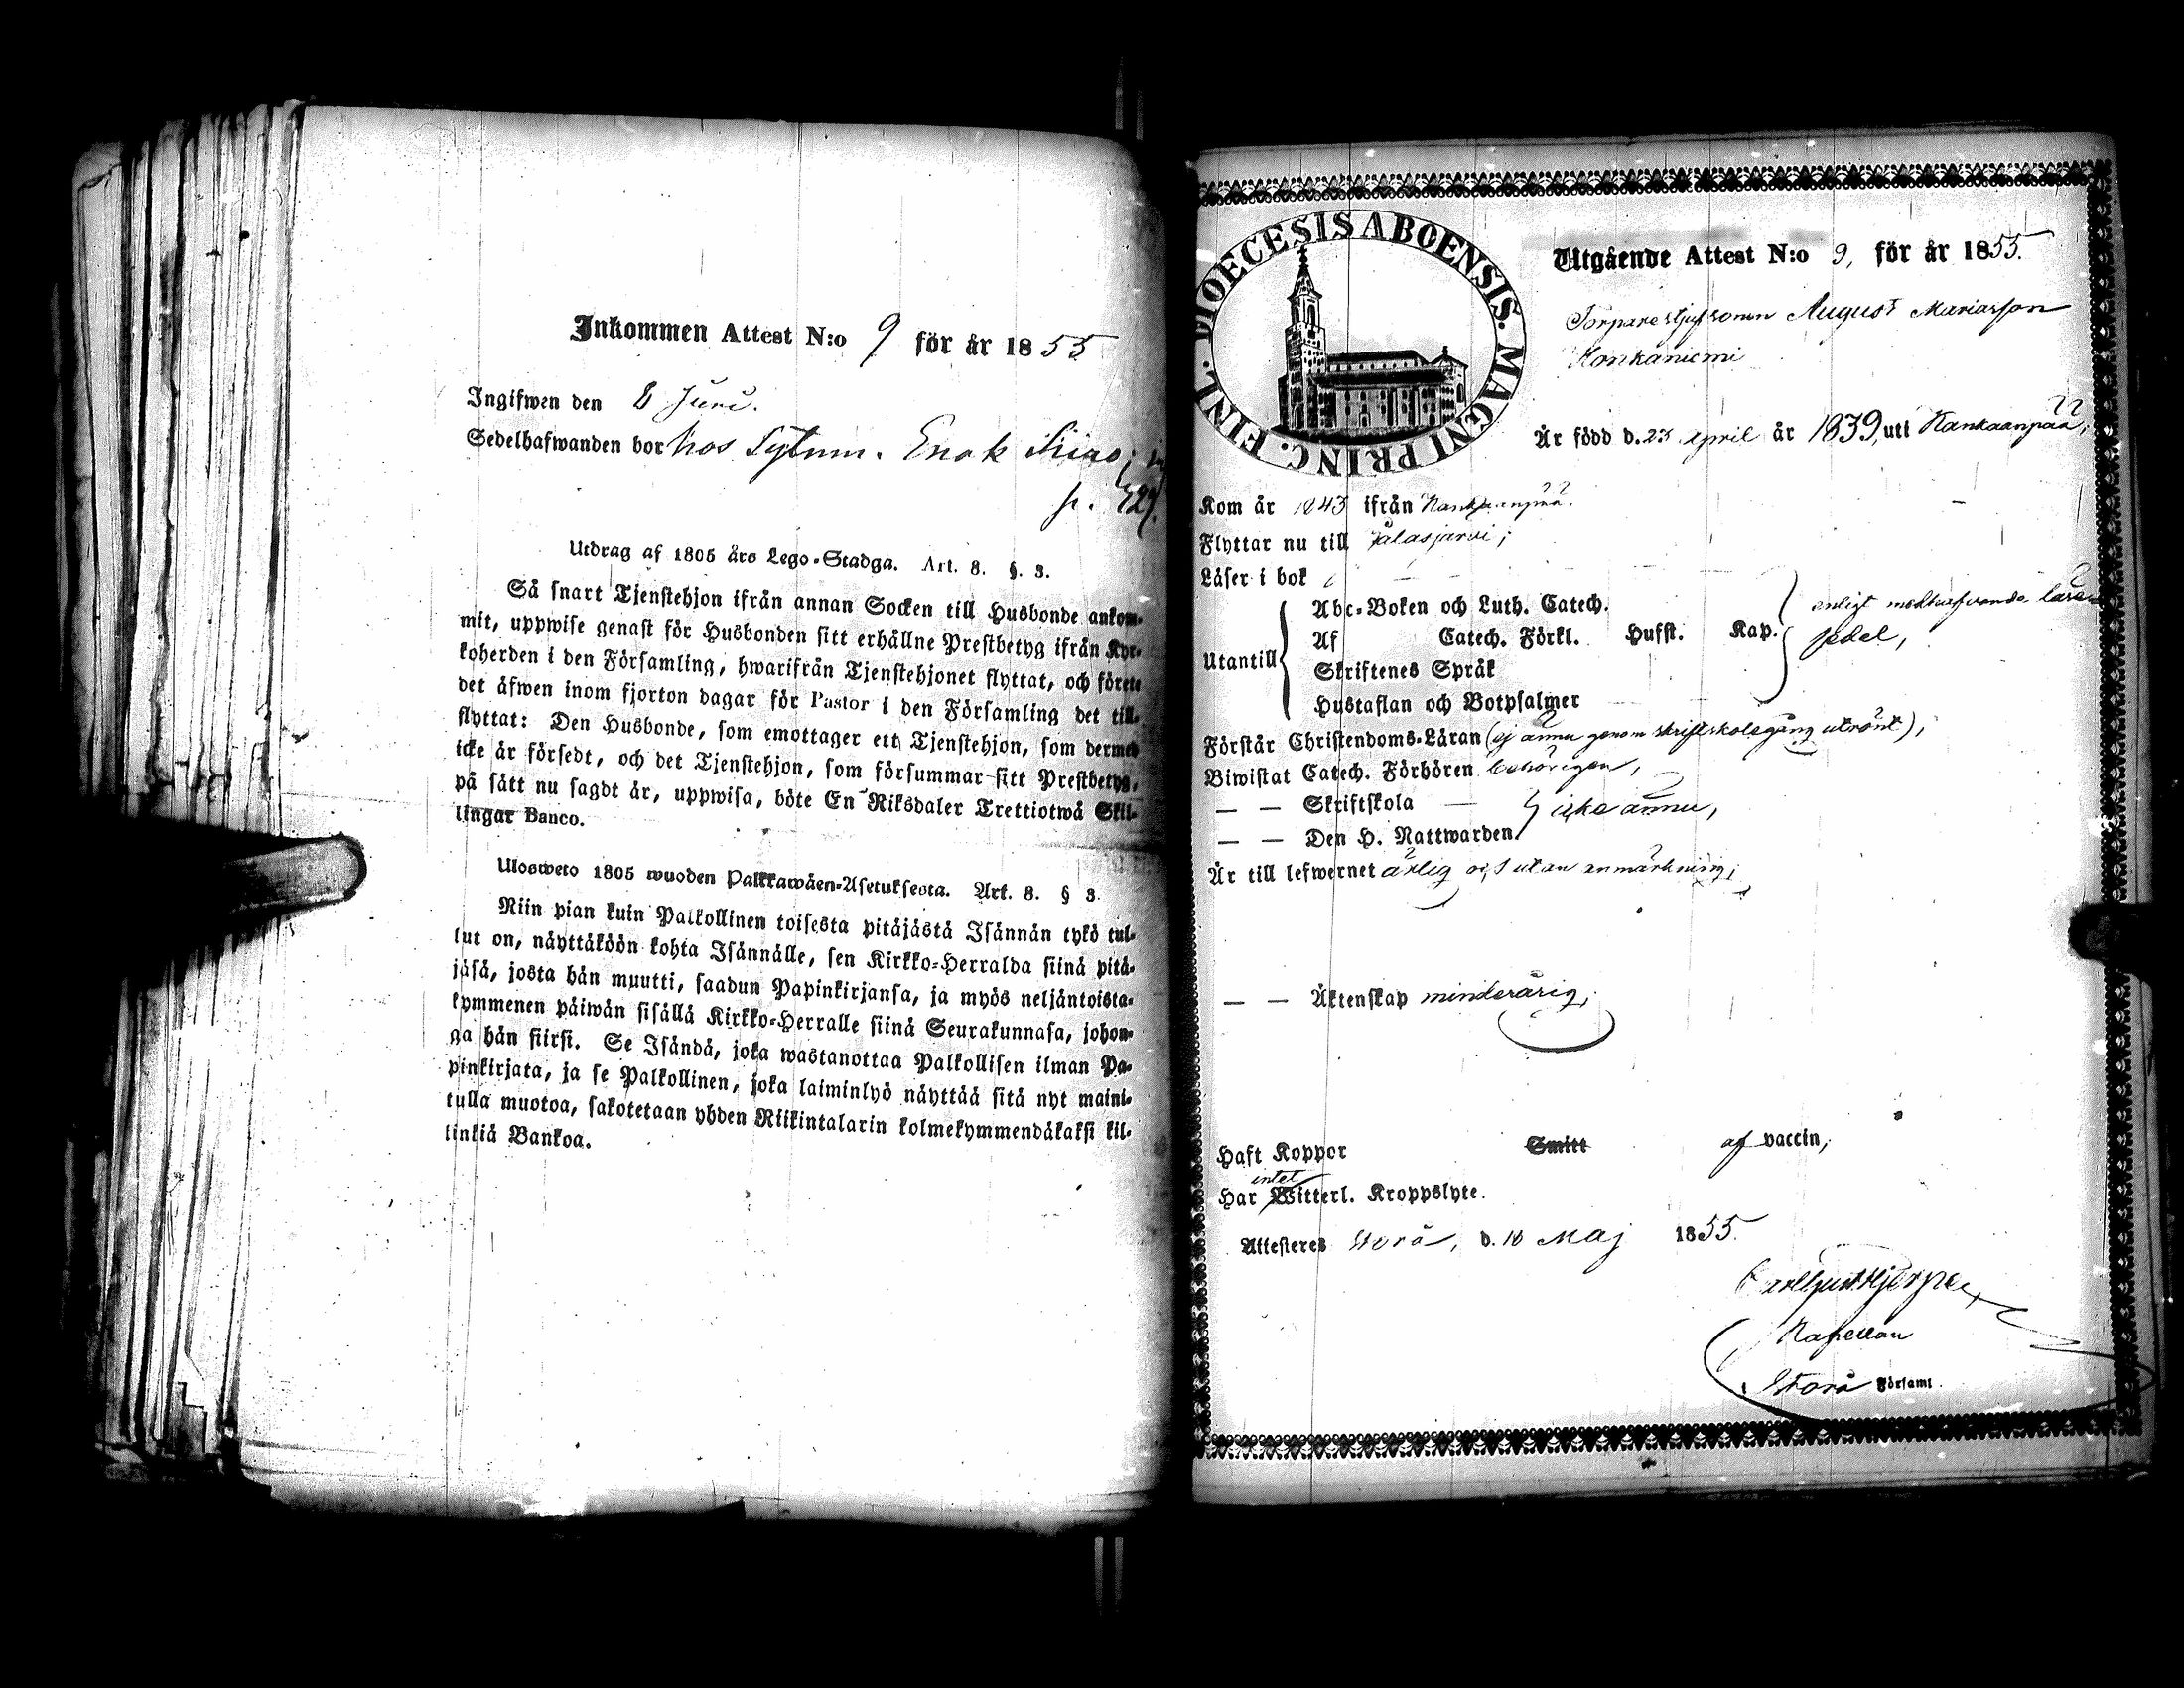 Inkommen Attest N:o 9 för år 1855
Ingifwen den 8 Juni.
Sedelhafwanden bor hos Sytnm. Enok
p. 427.
Utdrag af 1805 års Lego-Stadga. Art. 8. §. 3.
Så snart Tjenstehjon ifrån annan Socken till Husbonde ankom-
mit, uppwise genast för Husbonden sitt erhållne Prestbetyg ifrån Kyr-
koherden i den Församling, hwarifrån Tjenstehjonet flyttat, och förete
det äfwen inom fjorton dagar för Pastor i den Församling det till-
flyttat: Den Husbonde, som emottager ett Tjenstehjon, som dermed
icke är försedt, och det Tjenstehjon, som försummar sitt Prestbetyg,
på sätt nu sagdt är, uppwisa, böte En Riksdaler Trettiotwå Skil-
lingar Banco.
Ulosweto 1805 wuoden Palkkawäen-Asetuksesta. Art. 8. § 3.
Niin pian kuin Palkollinen toisesta pitäjästä Isännän tykö tul-
lut on, näyttäköön kohta Isännälle, sen Kirkko-Herralda siinä pitä-
jäsä, josta hän muutti, saadun Papinkirjansa, ja myös neljäntoista-
kymmenen päiwän sisällä Kirkko-Herralle siinä Seurakunnasa, johon-
ga hän siirsi. Se Isändä, joka wastanottaa Palkollisen ilman Pa-
pinkirjata, ja se Palkollinen, joka laiminlyö näyttää sitä nyt maini-
tulla muotoa, sakotetaan yhden Riikintalarin kolmekymmendäkaksi kil-
linkiä Bankoa.
FINL. DIOECESIS ABOENSIS. MAGNI PRINC.
Utgående Attest N:o 9, för år 1855.
Torparestjufsonen August Mariasson
Honkaniemi
Är född d. 23 April år 1839, uti Kankaanpää,
Kom år 1843 ifrån Kankaanpää.
Flyttar nu till Jalasjärvi;
Läser i bok
Utantill
Abc-Boken och Luth. Catech.
Af Catech. Förkl. Husst. Kap.
Skriftenes Språk
Hustaflan och Botpsalmer
enligt medhafvande läse
sedel,
Förstår Christendoms-Läran (ej ännu genom skriftskolegång utrönt),
Biwistat Catech. Förhören behörigen,
— — Skriftskola —
— — Den H. Nattwarden icke ännu,
Är till lefwernet ärlig och utan anmärkning;
— — Äktenskap minderårig;
Haft Koppor Smitt af vaccin,
Har intet Witterl. Kroppslyte.
Attesteres Storå, d. 18 Maj 1855.
Kapellan
Storå Församl.